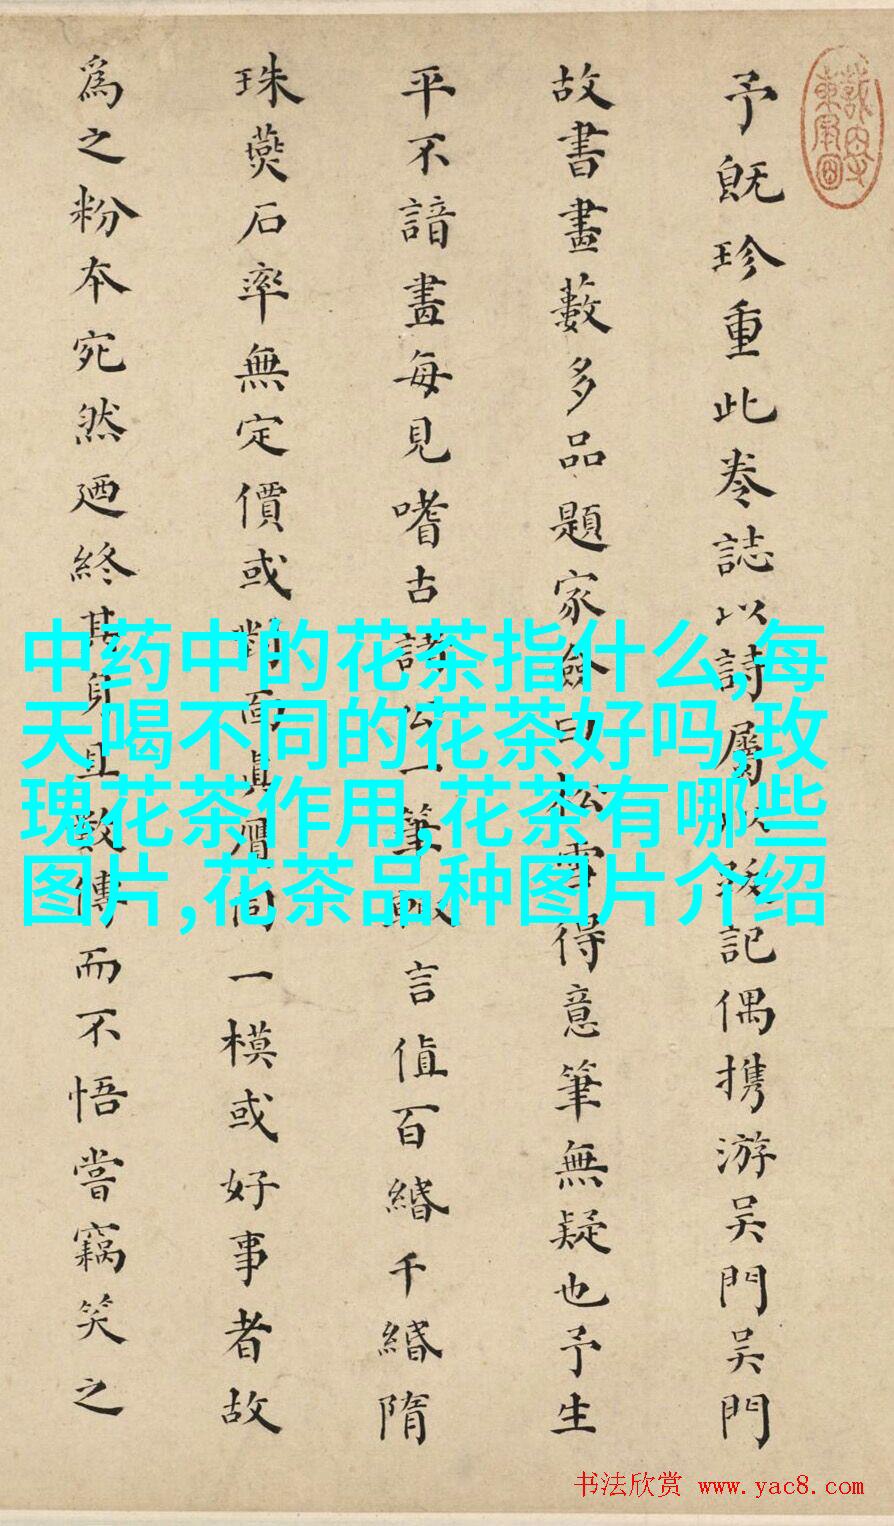 予既珍重此卷誌以詩屬以跋記偶携游吳門吳門
故書畫藪多品題家僉曰松雪得意筆無疑也予生
平不諳畫每見嗜古諸公一筆輒言値百緡千緡隋
珠燕石率無定價或對面眞贋同一模或好事者故
爲之粉本宛然迺終其身且敎傳而不悟嘗竊笑之
中药中的花茶指什么,每
天喝不同的花茶好吗,玫
瑰花茶作用,花茶有哪些
图片,花茶品种图片介绍
书法欣赏 www.yac8.com